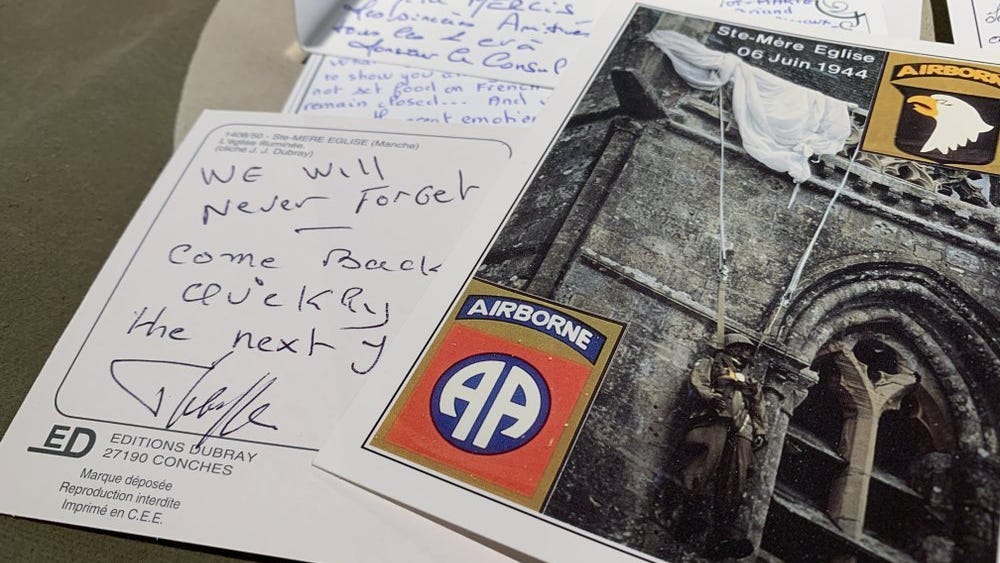 MERCIS
Amitiés
tous les
Monsieur le Consul
to show you
not set food on French
remain closed... And
emotion
1408/50 - Ste-MERE EGLISE (Manche)
L'église illuminée.
(cliché J. J. Dubray)
WE Will
Never Forget
Come Back
quickly
the next y
ED
EDITIONS DUBRAY
27190 CONCHES
Marque déposée
Reproduction interdite
Imprimé en C.E.E.
Ste-Mère Eglise
06 Juin 1944
AIRBORN
AIRBORNE
AA